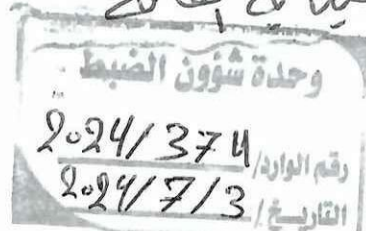 وحدة شؤون الضبط
رقم الوارد/ 2024/374
التاريخ/ 2024/7/3